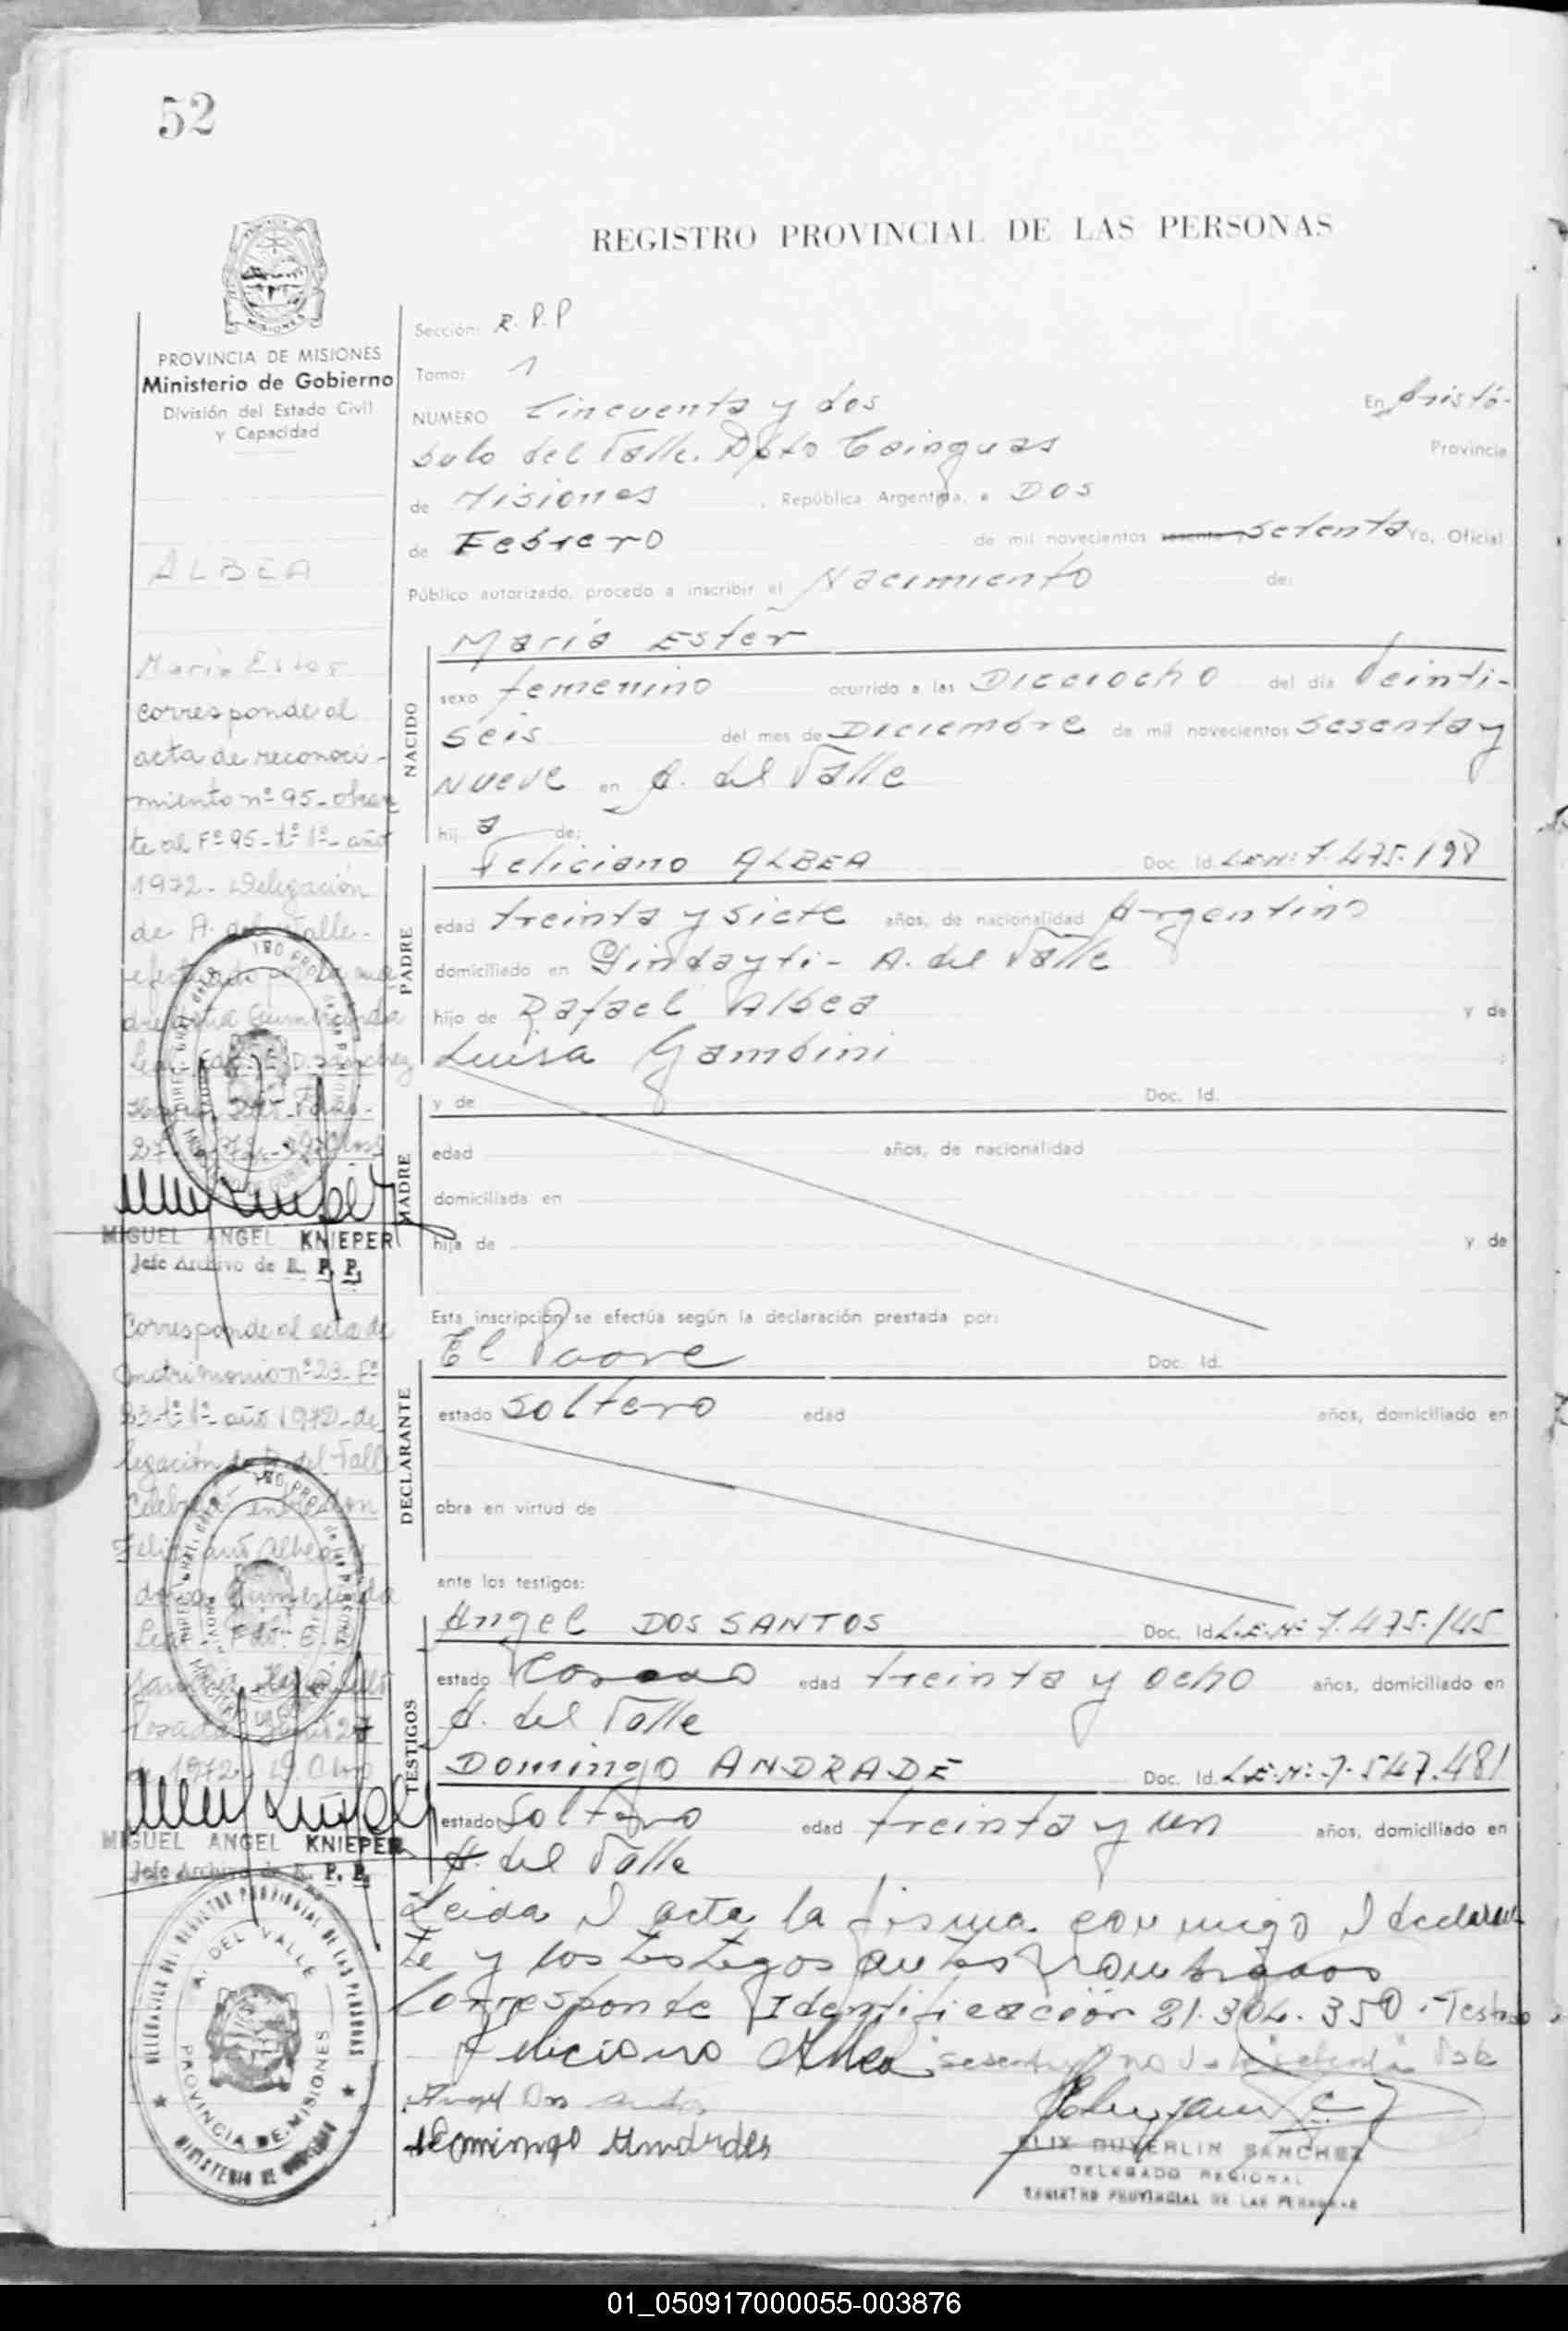 52
REGISTRO PROVINCIAL DE LAS PERSONAS
PROVINCIA DE MISIONES
Ministerio de Gobierno
División del Estado Civil
y Capacidad
ALBEA
Maria Ester
corresponde al
acta de reconoci-
miento nº 95 - obran
te al Fº 95 - tº 1º - año
1972 - Delegación
de A. del Valle -
MIGUEL ANGEL KNIEPER
Jefe Archivo de R. P. P.
Corresponde al acta de
matrimonio nº 23 - Fº
23 - tº 1º - año 1972 - de
legación de A. del Valle
MIGUEL ANGEL KNIEPER
Jefe Archivo de R. P. P.
DELEGACION DEL REGISTRO PROVINCIAL DE LAS PERSONAS
A. DEL VALLE
PROVINCIA DE MISIONES
Sección: R. P. P
Tomo: 1
NUMERO Cincuenta y dos En Aristó-
bulo del Valle. Dpto Cainguas Provincia
de Misiones, República Argentina, a Dos
de Febrero de mil novecientos setenta Yo, Oficial
Público autorizado, procedo a inscribir el Nacimiento de:
NACIDO
Maria Ester
sexo femenino ocurrido a las Dieciocho del día Veinti-
seis del mes de Diciembre de mil novecientos sesenta y
Nueve en A. del Valle
hija de:
PADRE
Feliciano ALBEA Doc. Id. L.E.Nº 7.475.198
edad treinta y siete años, de nacionalidad Argentino
domiciliado en A. del Valle
hijo de Rafael Albea y de
Luisa Gambini
MADRE
y de Doc. Id.
edad años, de nacionalidad
domiciliada en
hija de y de
Esta inscripción se efectúa según la declaración prestada por:
DECLARANTE
El Padre Doc. Id.
estado soltero edad años, domiciliado en
obra en virtud de
ante los testigos:
TESTIGOS
Angel DOS SANTOS Doc. Id. L.E.Nº 7.475.145
estado Casado edad treinta y ocho años, domiciliado en
A. del Valle
Domingo ANDRADE Doc. Id. L.E.Nº 7.547.481
estado Soltero edad treinta y un años, domiciliado en
A. del Valle
Leida el acta la firma conmigo el declaran
te y los testigos antes nombrados
Corresponde Identificación 21.304.350. Testado
Feliciano Albea "sesenta y" no Vale "setenta" Vale
Angel Dos Santos
Domingo Andrades
FELIX DUVERLIN SANCHEZ
DELEGADO REGIONAL
REGISTRO PROVINCIAL DE LAS PERSONAS
01_050917000055-003876